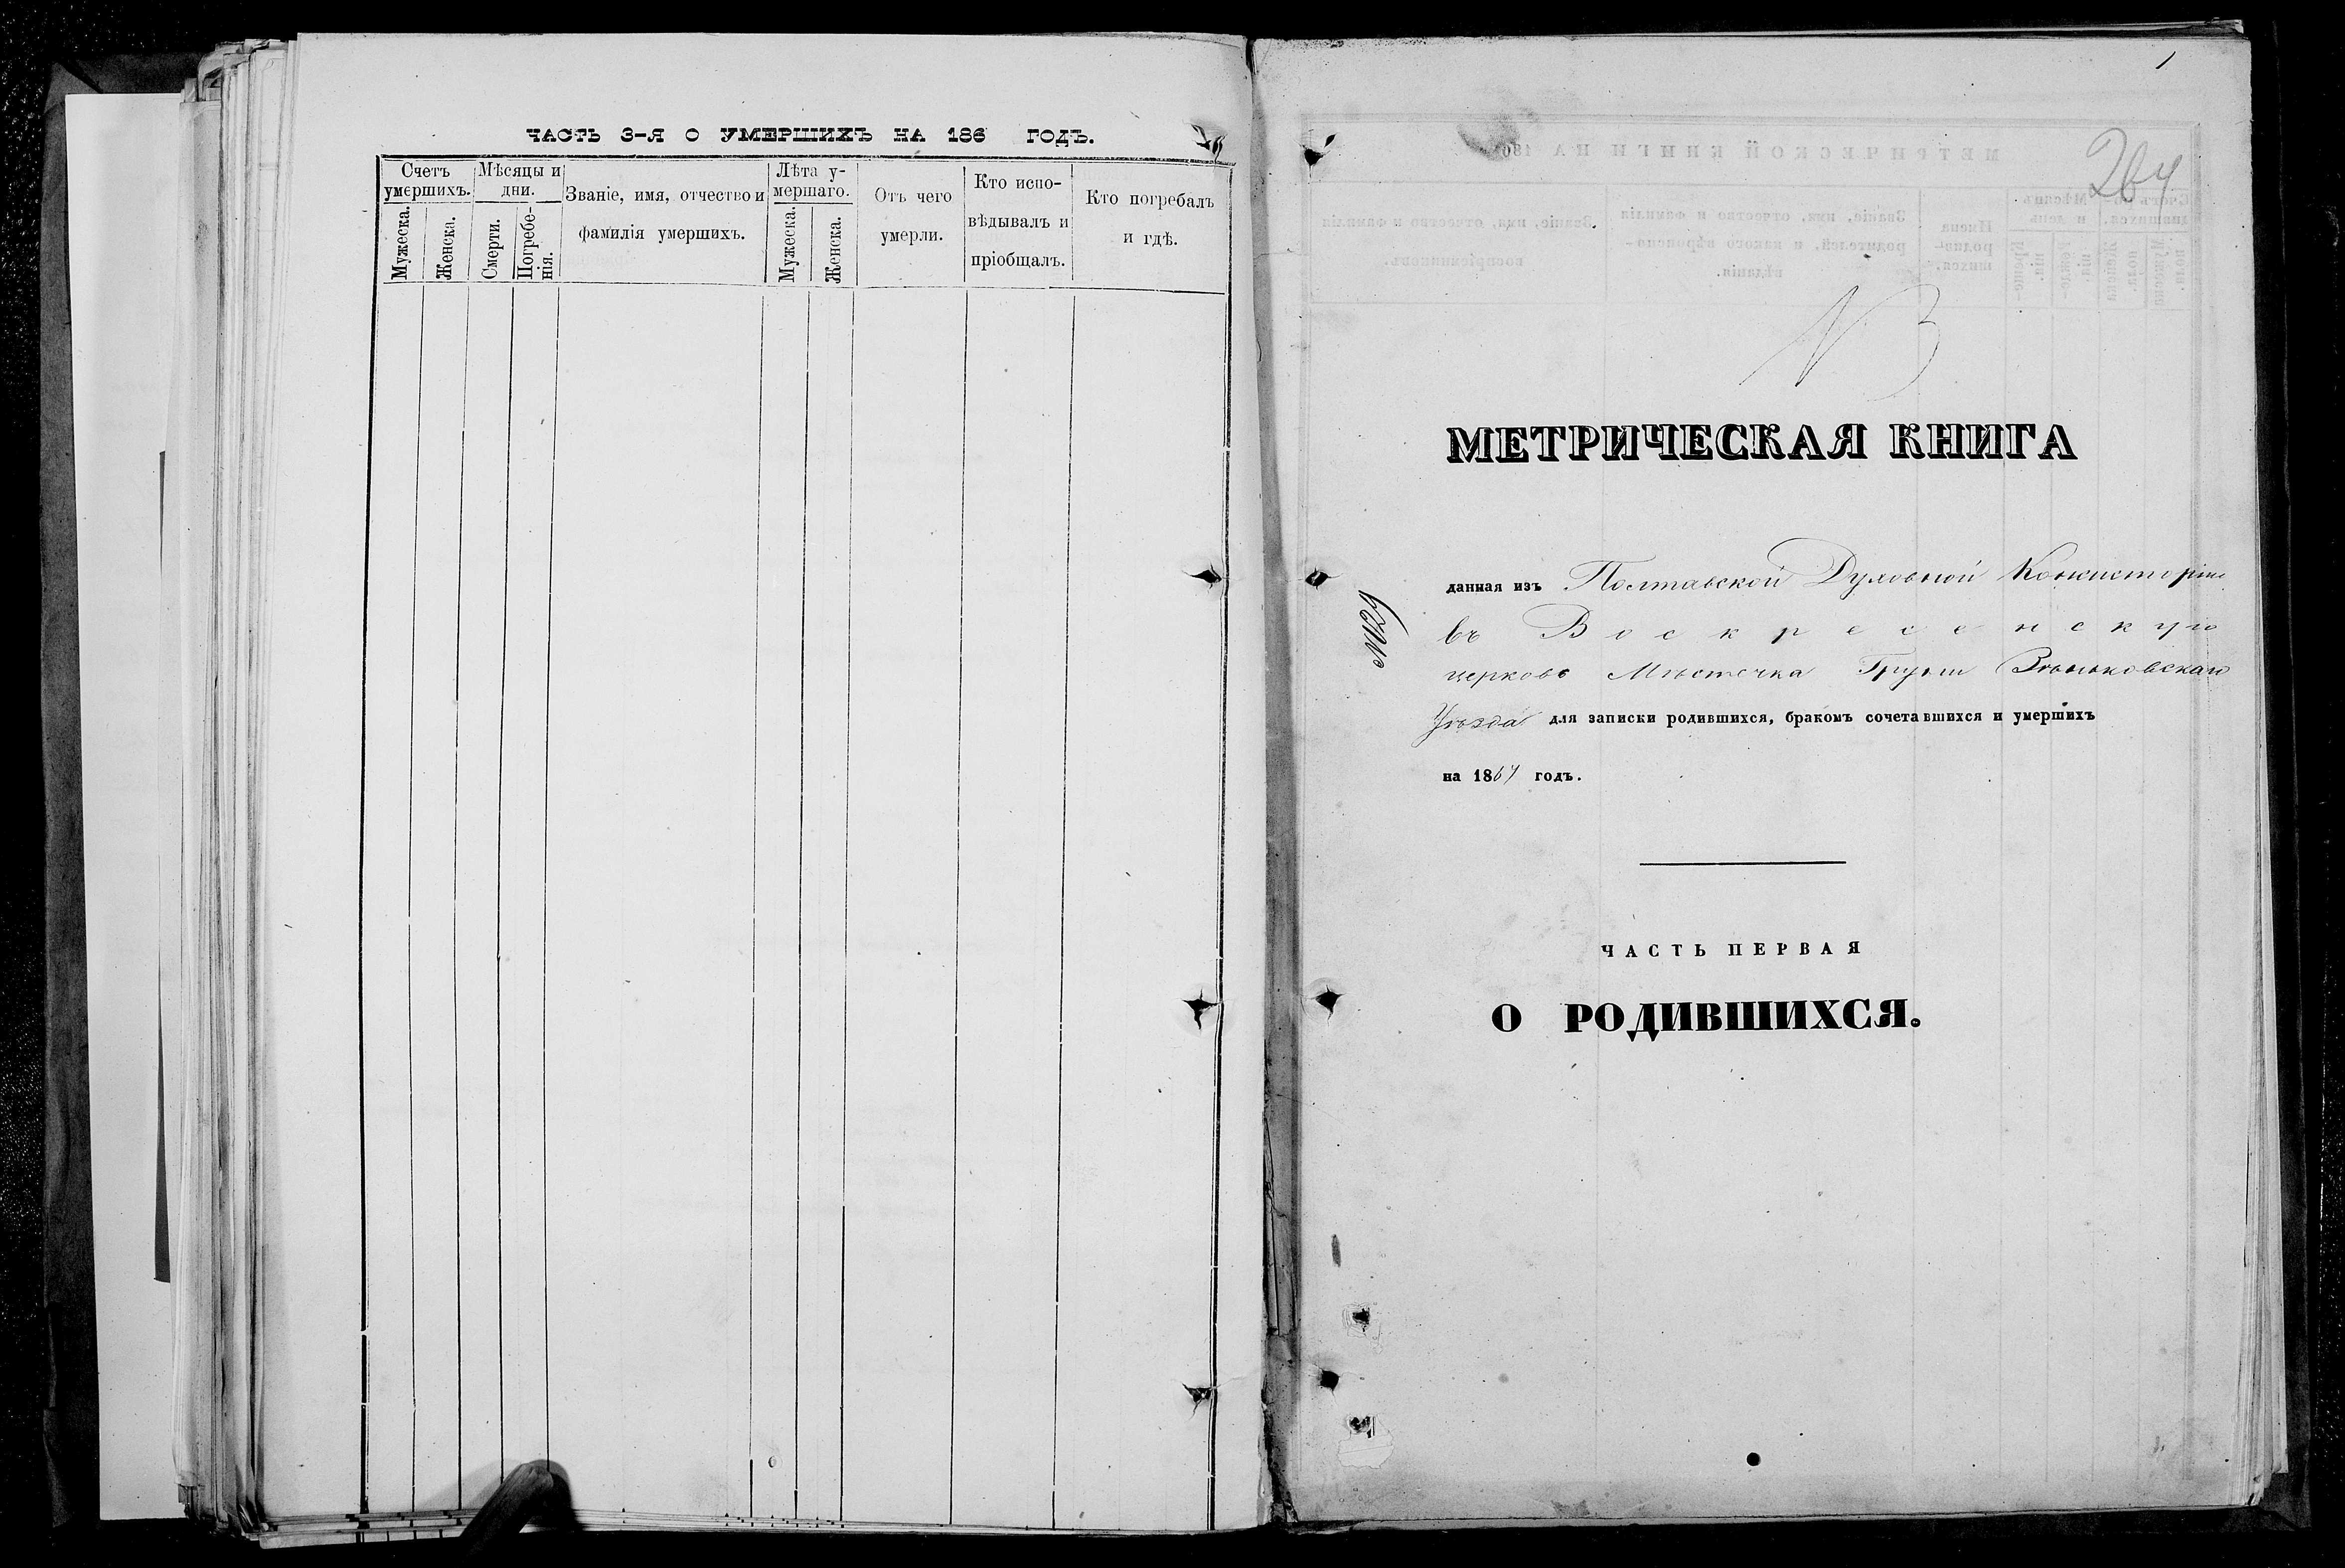 ЧАСТЬ 3-Я О УМЕРШИХЪ НА 186 ГОДЪ.
Счетъ умершихъ.
Мужеска.
Женска.
Мѣсяцы и дни.
Смерти.
Погребе-
нія.
Званіе, имя, отчество и
фамилія умершихъ.
Лѣта у-
мершаго.
Мужеска.
Женска.
Отъ чего
умерли.
Кто испо-
вѣдывалъ и
пріобщалъ.
Кто погребалъ
и гдѣ.
1
264
МЕТРИЧЕСКАЯ КНИГА
данная изъ Полтавской Духовной Консисторіи
въ Воскресенскую
церковь Мѣстечка Груни Зѣньковскаго
Уѣзда для записки родившихся, бракомъ сочетавшихся и умершихъ
на 1864 годъ.
ЧАСТЬ ПЕРВАЯ
О РОДИВШИХСЯ.